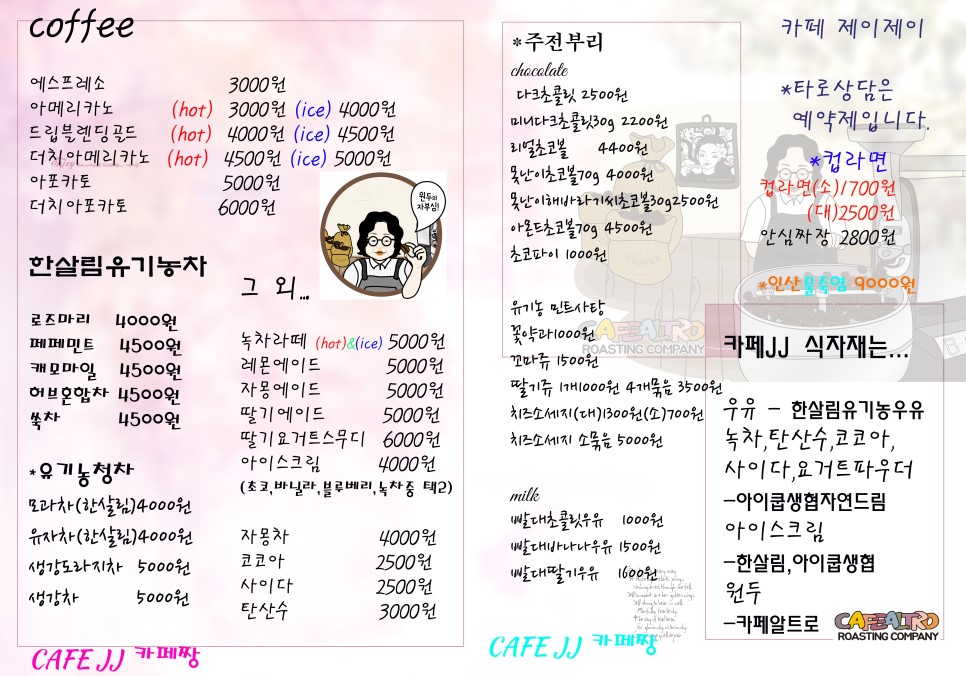 coffee
에스프레소 3000원
아메리카노 (hot) 3000원 (ice) 4000원
드립블렌딩골드 (hot) 4000원 (ice) 4500원
더치아메리카노 (hot) 4500원 (ice) 5000원
아포카토 5000원
더치아포카토 6000원
원두의
자부심!
한살림유기농차
로즈마리 4000원
페페민트 4500원
캐모마일 4500원
허브혼합차 4500원
쑥차 4500원
*유기농청차
모과차(한살림)4000원
유자차(한살림)4000원
생강도라지차 5000원
생강차 5000원
그 외...
녹차라떼 (hot)&(ice) 5000원
레몬에이드 5000원
자몽에이드 5000원
딸기에이드 5000원
딸기요거트스무디 6000원
아이스크림 4000원
(초코,바닐라,블루베리,녹차중 택2)
자몽차 4000원
코코아 2500원
사이다 2500원
탄산수 3000원
CAFE JJ 카페짱
*주전부리
chocolate
다크초콜릿 2500원
미니다크초콜릿30g 2200원
리얼초코볼 4400원
못난이초코볼70g 4000원
못난이해바라기씨초코볼30g2500원
아몬드초코볼70g 4500원
초코파이 1000원
유기농 민트사탕
꽃약과1000원
꼬마쥬 1500원
딸기쥬 1개1000원 4개묶음 3500원
치즈소세지(대)1300원(소)700원
치즈소세지 소묶음 5000원
milk
빨대초콜릿우유 1000원
빨대바나나우유 1500원
빨대딸기우유 1600원
CAFE JJ 카페짱
카페 제이제이
*타로상담은
예약제입니다.
*컵라면
컵라면(소)1700원
(대)2500원
안심짜장 2800원
*인산물죽염 9000원
COFFEE
CAFEALTRO
ROASTING COMPANY
카페JJ 식자재는...
우유 - 한살림유기농우유
녹차,탄산수,코코아,
사이다,요거트파우더
-아이쿱생협자연드림
아이스크림
-한살림,아이쿱생협
원두
-카페알트로
CAFEALTRO
ROASTING COMPANY